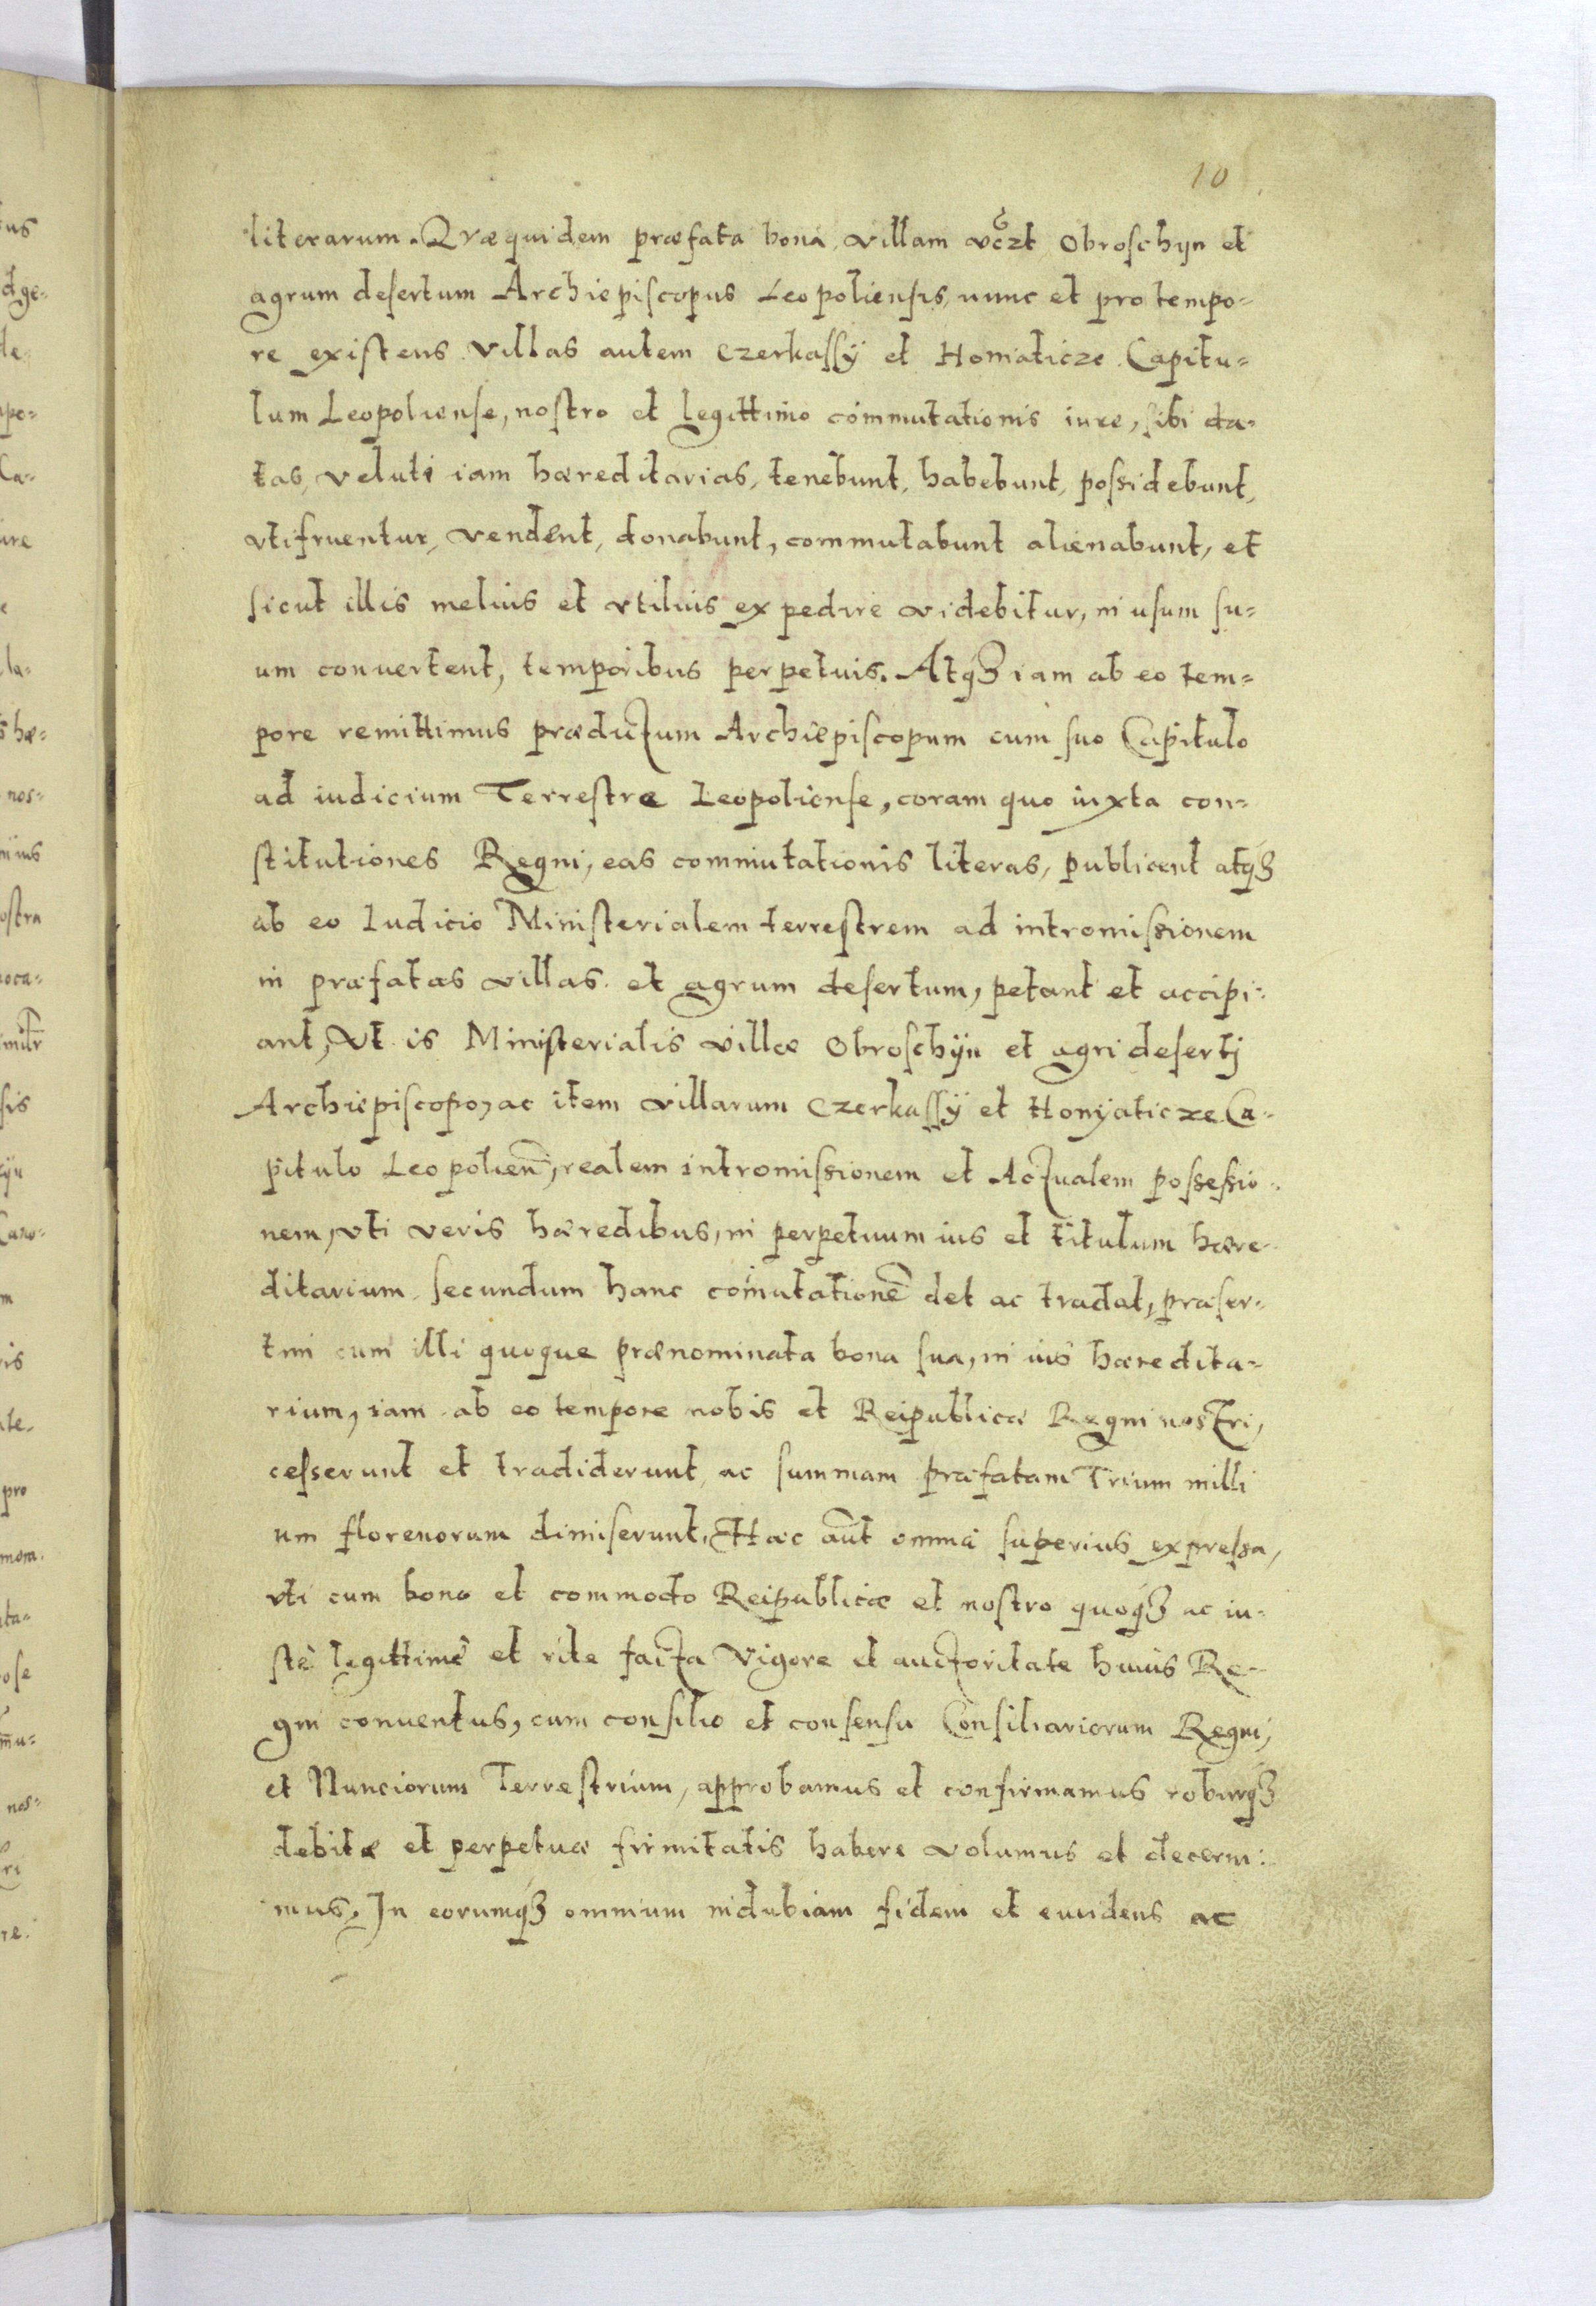 10
literarum. Quæ quidem præfata bona, villam vczt Obroschyn et
agrum desertum Archiepiscopus Leopoliensis, nunc et pro tempo=
re existens villas autem Czerkassÿ et Honiaticze Capitu=
lum Leopoliense, nostro et legittimo commutationis iure, sibi da=
tas, veluti iam hæreditarias, tenebunt, habebunt, possidebunt,
vtifruentur, vendent, donabunt, commutabunt alienabunt, et
sicut illis melius et vtilius expedire videbitur, in usum su=
um convertent, temporibus perpetuis. Atqȝ iam ab eo tem=
pore remittimus prædictum Archiepiscopum cum suo Capitulo
ad iudicium Terrestre Leopoliense, coram quo iuxta con=
stitutiones Regni, eas commutationis literas, publicent atqȝ
ab eo Iudicio Ministerialem terrestrem ad intromissionem
in præfatas villas et agrum desertum, petant et accipi=
ant, Vt is Ministerialis villæ Obroschÿn et agri desertj
Archiepiscopo, ac item villarum Czerkassÿ et Honÿaticze Ca=
pitulo Leopolien̄, realem intromissionem et Actualem possessio=
nem, vti veris hæredibus, in perpetuum ius et titulum hære=
ditarium secundum hanc com̄utationē det ac tradat, præser=
tim cum illi quoque prænominata bona sua, in ius hæredita=
rium, iam ab eo tempore nobis et Reipublicæ Regni nostri,
cesserunt et tradiderunt, ac summam præfatam Trium milli
um florenorum dimiserunt. Hæc aūt omnia superius expressa,
vti cum bono et commodo Reipublicæ et nostro quoqȝ ac iu=
stè legittimè et rite facta Vigore et auctoritate huius Re=
gni conuentus, cum consilio et consensu Consiliariorum Regni,
et Nunciorum Terrestrium, approbamus et confirmamus roburqȝ
debitæ et perpetuæ firmitatis habere volumus et decerni=
mus. In eorumqȝ omnium indubiam fidem et euidens ac